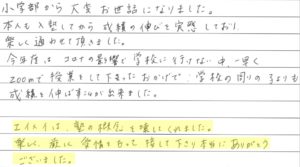 小学部から大変お世話になりました。
本人も入塾してから成績の伸びを実感しており
楽しく通わせて頂きました。
今年度はコロナの影響で学校に行けない中、一早く
zoomで授業をして下さったおかげで、学校の周りの子よりも
成績を伸ばす事が出来ました。
エイメイは、塾の概念を壊してくれました。
楽しく、厳しく、愛情をもって接して下さり本当にありがとう
ございました。